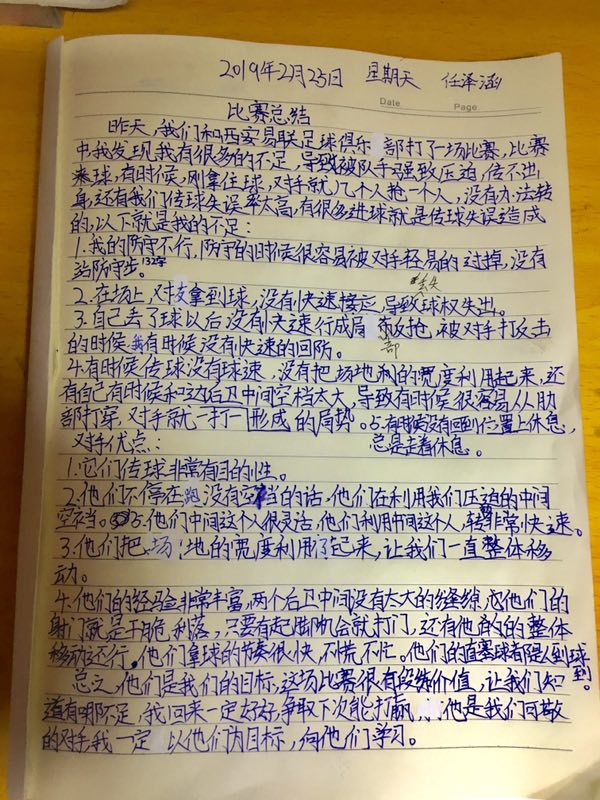 2019年2月25日 星期天 任泽涵
Date Page
比赛总结
昨天,我们和西安易联足球俱乐 部打了一场比赛,比赛
中我发现我有很多的不足,导致被队手强致压迫,传不出
来球,有时候,刚拿住球,对手就几个人抢一个人,没有办法转
身,还有我们传球失误率太高,有很多进球就是传球失误造成
的,以下就是我的不足:
1.我的防守不行,防守的时候很容易被对手轻易的过掉,没有
站防守步。
2.在场上,对友拿到球,没有快速接应,导致球权失出。
3.自己丢了球以后没有快速行成局部反抢,被对手打反击
的时候,我有时候没有快速的回防。
4.有时候传球没有球速,没有把场地利的宽度利用起来,还
有自己有时候和边后卫中间空档太大,导致有时候很容易从肋
部打穿,对手就一打一形成的局势。5.有时候没有回到位置上休息,
总是走着休息。
对手优点:
1.它们传球非常有目的性。
2.他们不停在跑没有空档的话,他们在利用我们压迫的中间
空档。5.他们中间这个人很灵活,他们利用中间这个人,转非常快速。
3.他们把场地的宽度利用了起来,让我们一直整体移
动。
4.他们的经验非常丰富,两个后卫中间没有太大的缝隙,他们的
射门就是干脆,利落,只要有起脚机会就打门,还有他们的整体
移动还行。他们拿球的节奏很快,不慌不忙。他们的直塞球都是人到球
到。
总之,他们是我们的目标,这场比赛很有价值,让我们知
道有哪不足,我回来一定好好,争取下次能打赢,他是我们可敬
的对手,我一定 以他们为目标,向他们学习。